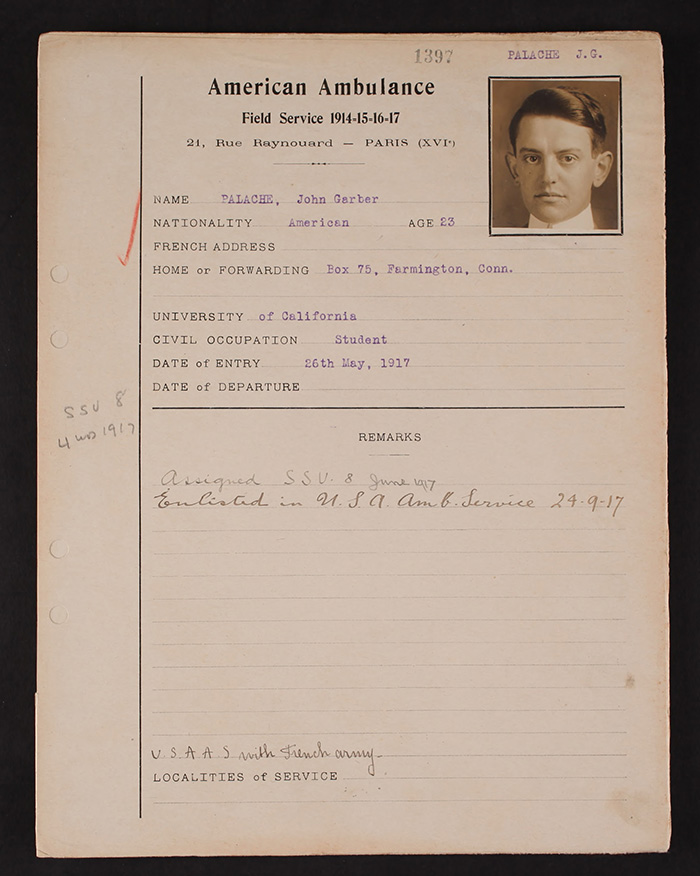 1397 PALACHE J.G.
American Ambulance
Field Service 1914-15-16-17
21, Rue Raynouard — PARIS (XVIe)
NAME PALACHE, John Garber
NATIONALITY American AGE 23
FRENCH ADDRESS
HOME or FORWARDING Box 75, Farmington, Conn.
UNIVERSITY of California
CIVIL OCCUPATION Student
DATE of ENTRY 26th May, 1917
DATE of DEPARTURE
SSU 8
1917
REMARKS
Assigned S S U. 8 June 1917
Enlisted in U. S. A. Amb. Service 24-9-17
U S A A S with French army-
LOCALITIES of SERVICE